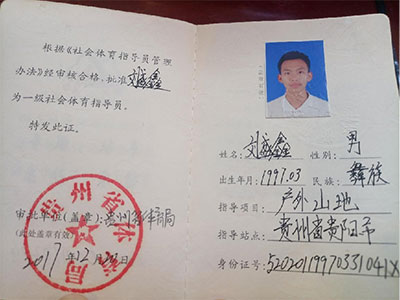 根据《社会体育指导员管理
办法》经审核合格，批准刘威鑫
为一级社会体育指导员。
特发此证。
贵州省体育局
审批单位(盖章)：贵州省体育局
(此处盖章有效)
2017年12月20日
姓名：刘威鑫 性别：男
出生年月：1997.03 民族：彝族
指导项目：户外山地
指导站点：贵州省贵阳市
身份证号：52020119970331041X